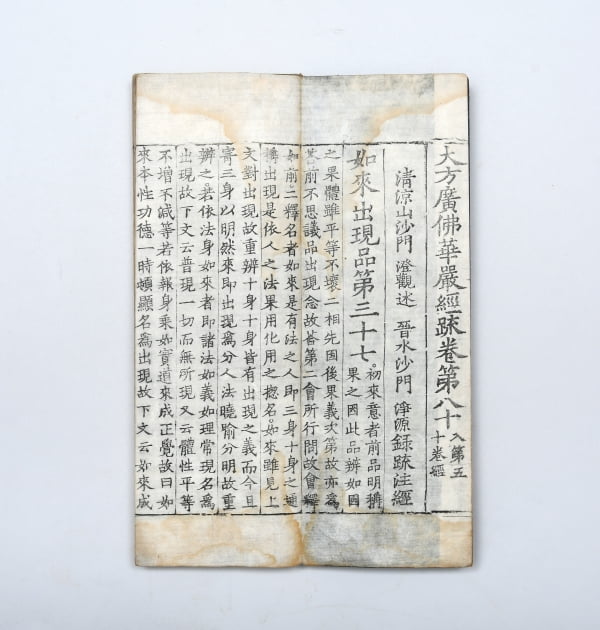 大方廣佛華嚴經䟽卷第八十 入第五十卷經
清涼山沙門 澄觀述 晉水沙門 淨源録䟽注經
如來出現品第三十七 初來意者前品明稱果之因此品辨如因
之果體雖平等不壞二相先因後果義次第故亦爲
荅前不思議品出現念故荅第二會所行問故會釋
如前二釋名者如來是有法之人即三身十身之通
稱出現是依人之法果用化用之揔名如來雖見上
文對出現故重辨十身十身皆有出現之義而今且
寄三身以明然來即出現爲分人法曉喻分明故重
辨之若依法身如來者即諸法如義如理常現名爲
出現故下文云普現一切而無所現又云體性平等
不增不減等若依報身乗如實道來成正覺故曰如
來本性功德一時頓顯名爲出現故下文云如來成